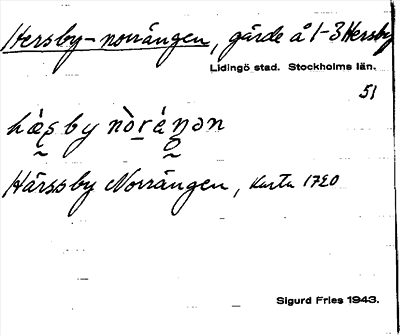 Hersby-norrängen, gärde å 1-3 Hersby
Lidingö stad. Stockholms län.
51
Härssby Norrängen, Karta 1720
Sigurd Fries 1943.